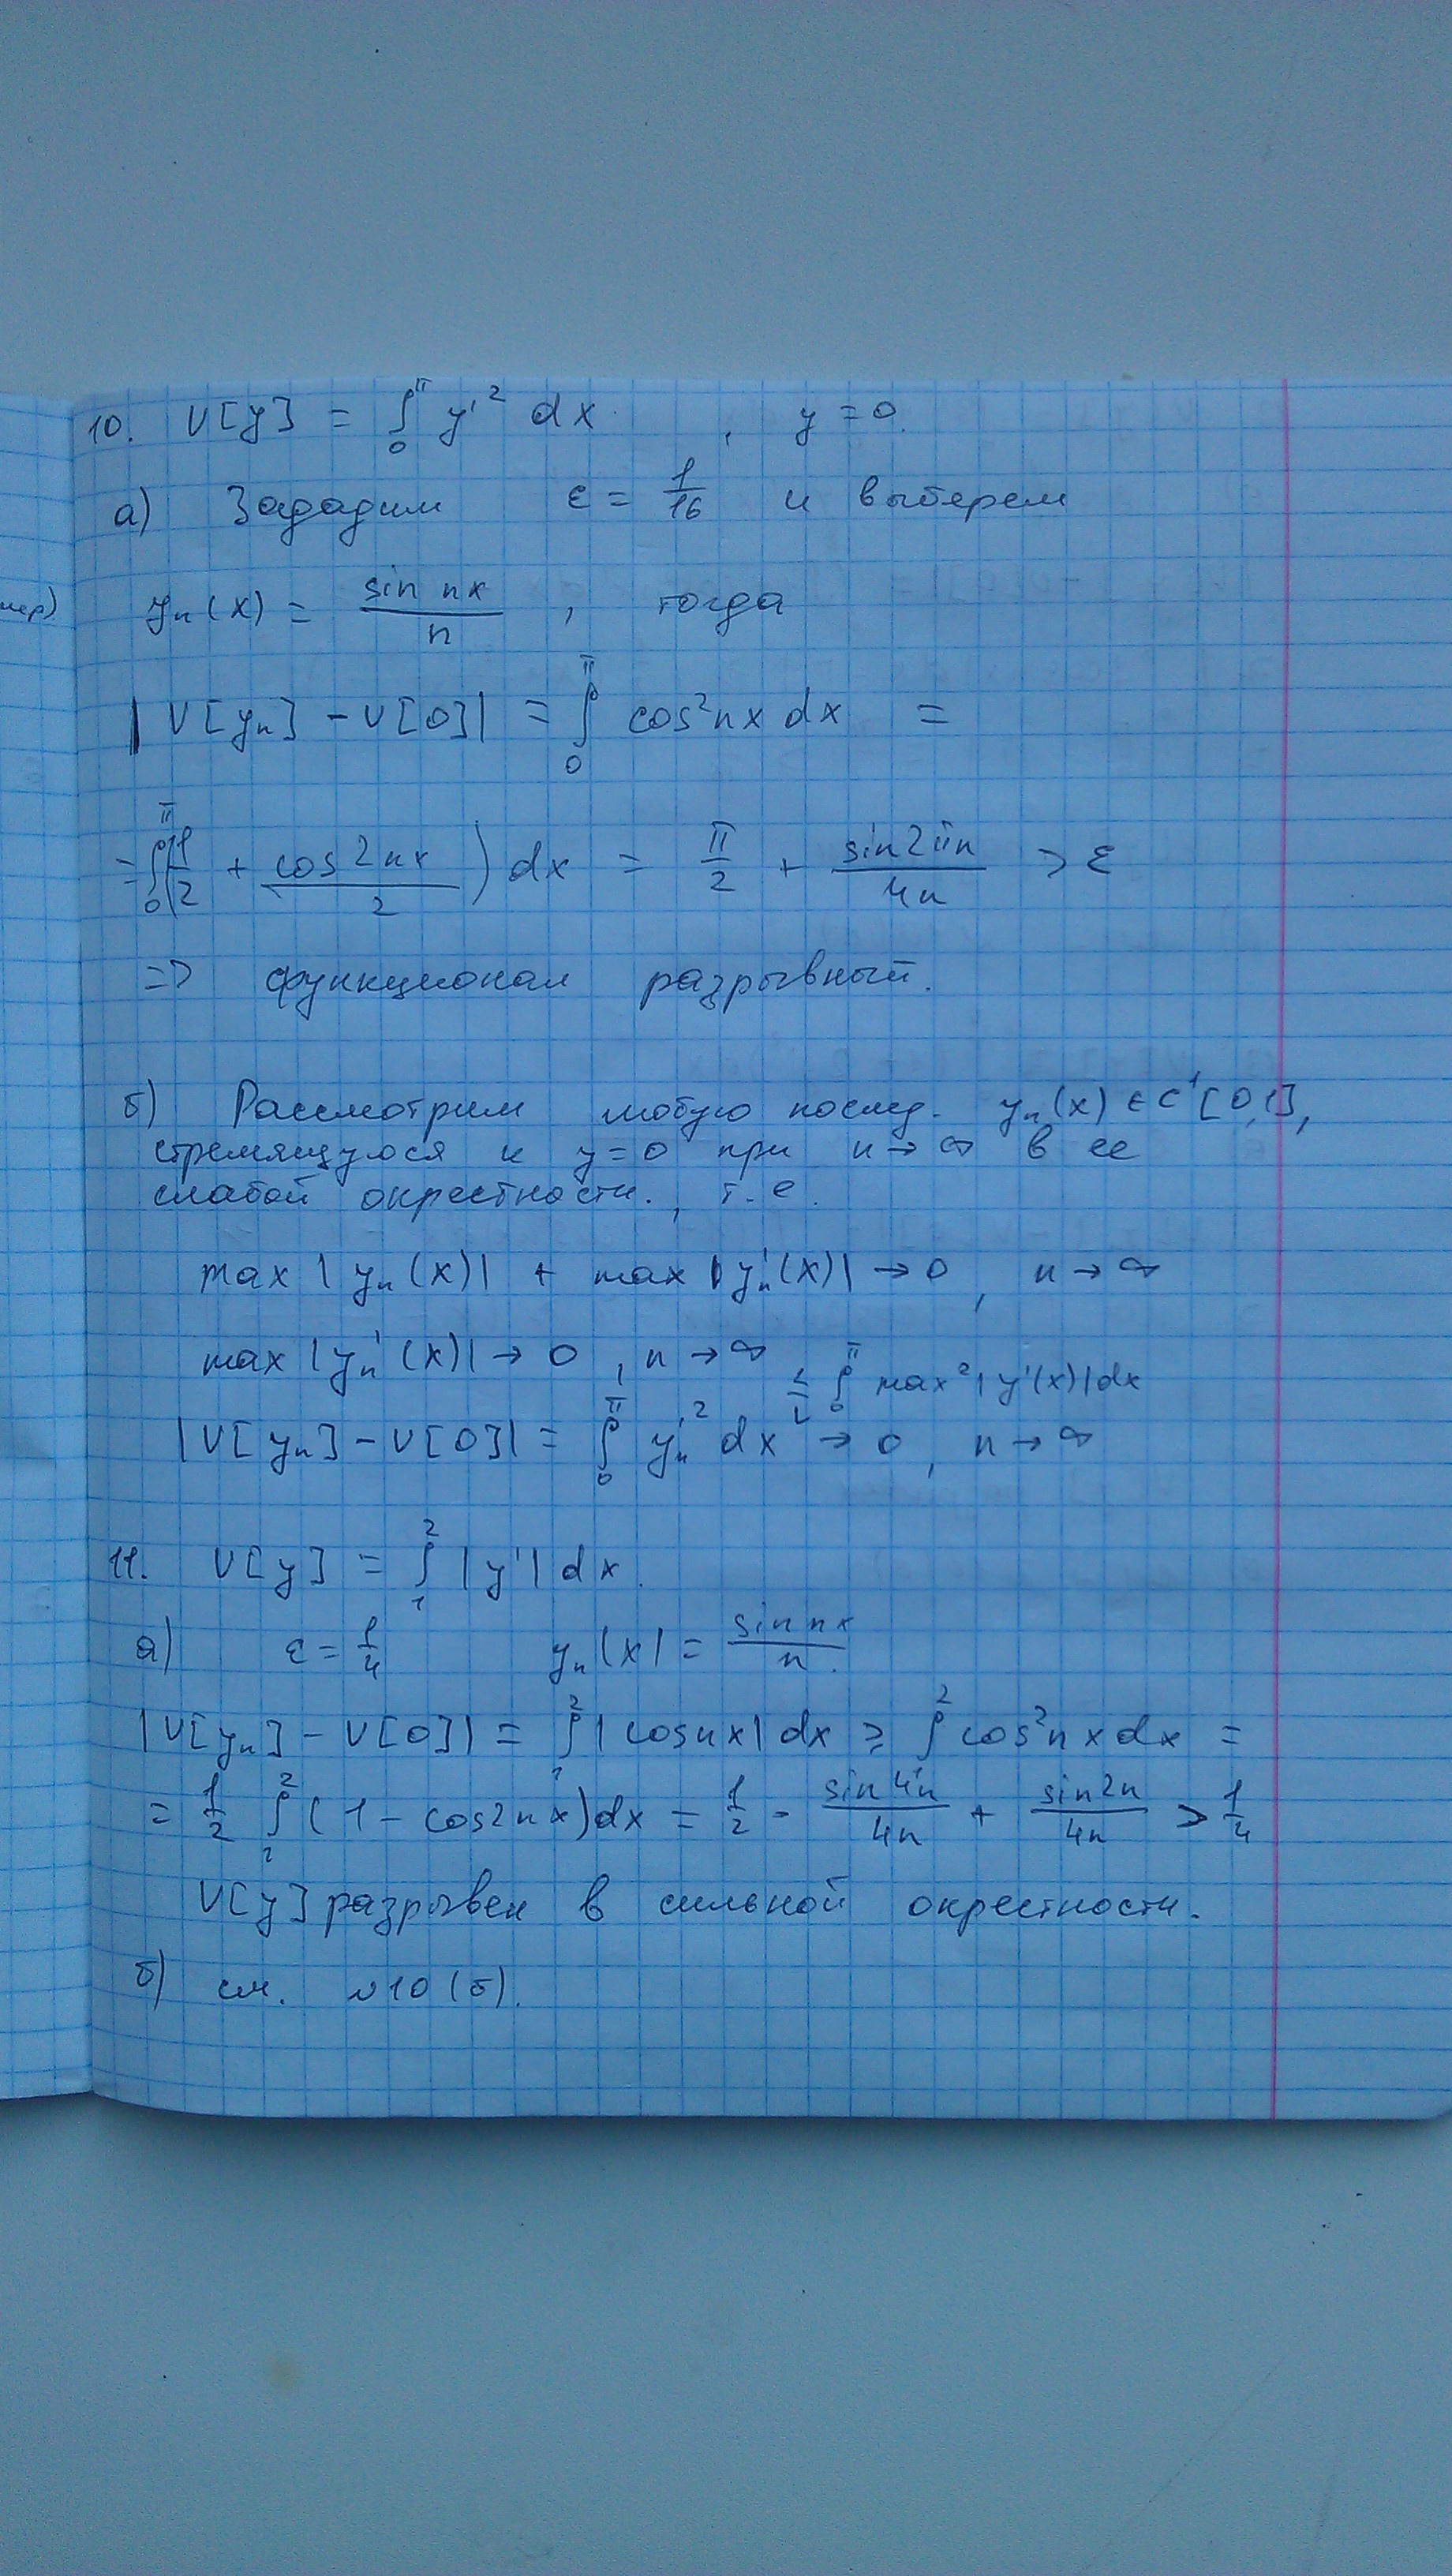 10. V[y] = ∫₀^π y'² dx , y = 0.
а) Зададим ε = 1/16 и выберем
yₙ(x) = sin nx / n , тогда
|V[yₙ] - V[0]| = ∫₀^π cos²nx dx =
= ∫₀^π (1/2 + cos2nx / 2) dx = π/2 + sin2πn / 4n > ε
=> функционал разрывный.
б) Рассмотрим любую послед. yₙ(x) ∈ C¹[0,1],
стремящуюся к y=0 при n→∞ в ее
слабой окрестности., т.е.
max |yₙ(x)| + max |yₙ'(x)| → 0 , n → ∞
max |yₙ'(x)| → 0 , n → ∞
≤ ∫₀^π max²|y'(x)|dx
|V[yₙ] - V[0]| = ∫₀^π yₙ'² dx → 0 , n → ∞
11. V[y] = ∫₁² |y'| dx.
а) ε = 1/4 yₙ(x) = sin nx / n.
|V[yₙ] - V[0]| = ∫₁² |cosnx| dx ≥ ∫² cos²nx dx =
= 1/2 ∫₁² (1 - cos2nx)dx = 1/2 - sin4n / 4n + sin2n / 4n > 1/4
V[y] разрывен в сильной окрестности.
б) см. №10 (б).